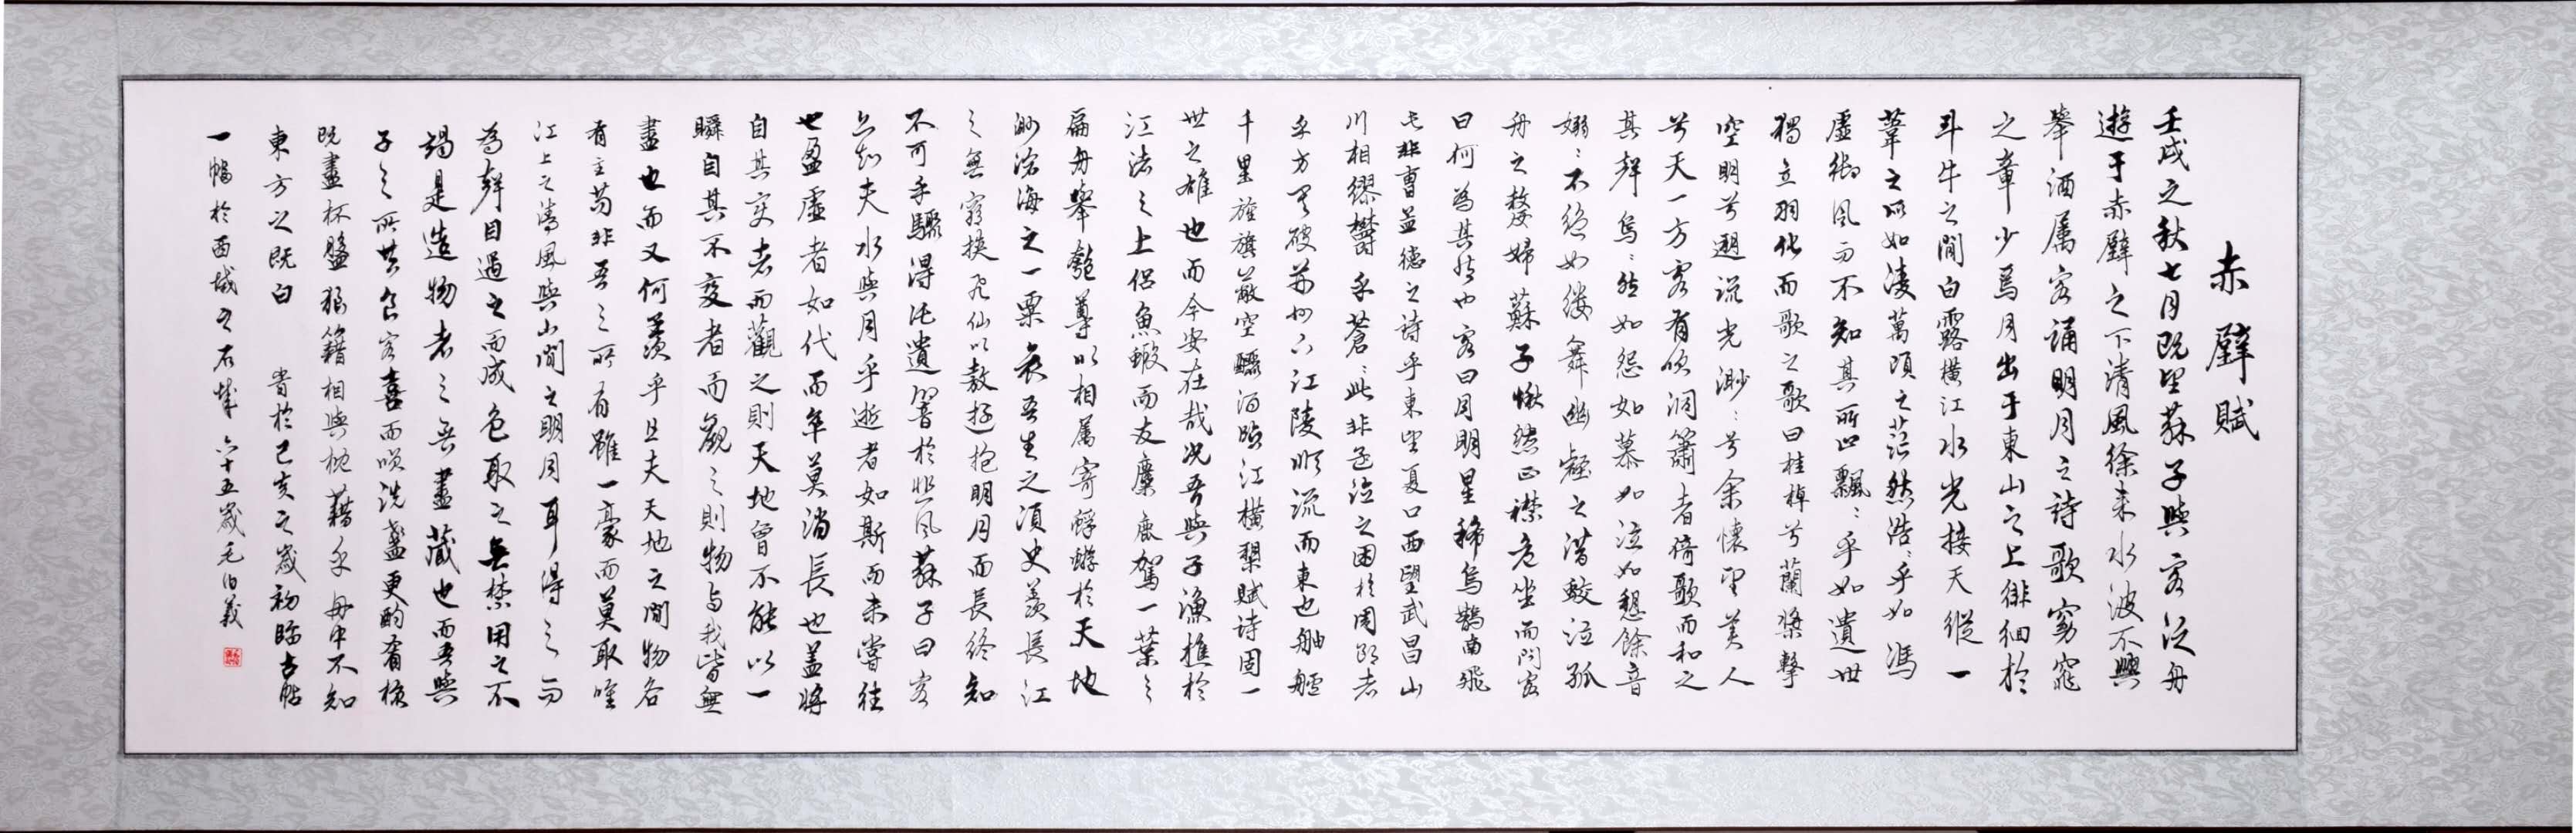 赤壁賦
壬戌之秋七月既望蘇子與客泛舟
遊于赤壁之下清風徐来水波不興
舉酒属客誦明月之詩歌窈窕
之章少焉月出于東山之上徘徊於
斗牛之間白露横江水光接天縱一
葦之所如凌萬頃之茫然浩:乎如馮
虚御風而不知其所止飄:乎如遺世
獨立羽化而歌之歌曰桂棹兮蘭槳擊
空明兮遡流光渺:兮余懷望美人
兮天一方客有吹洞簫者倚歌而和之
其聲烏:然如怨如慕如泣如愬餘音
嫋:不絶如縷舞幽壑之潜蛟泣孤
舟之嫠婦蘇子愀然正襟危坐而問客
曰何為其然也客曰月明星稀烏鵲南飛
此非曹孟德之詩乎東望夏口西望武昌山
川相繆欝乎蒼:此非孟徳之困於周郎者
乎方其破荊州下江陵順流而東也舳艫
千里旌旗蔽空釃酒臨江横槊賦詩固一
世之雄也而今安在哉况吾與子漁樵於
江渚之上侣魚蝦而友麋鹿駕一葉之
扁舟舉匏尊以相属寄蜉蝣於天地
渺滄海之一粟哀吾生之須臾羨長江
之無窮挟飛仙以敖遊抱明月而長終知
不可乎驟得託遺響於悲風蘇子曰客
亦知夫水與月乎逝者如斯而未嘗往
也盈虚者如代而卒莫消長也盖將
自其変者而觀之則天地曾不能以一
瞬自其不變者而觀之則物与我皆無
盡也而又何羨乎且夫天地之間物各
有主苟非吾之所有雖一豪而莫取唯
江上之清風與山間之明月耳得之而
為聲目遇之而成色取之無禁用之不
竭是造物者之無盡藏也而吾與
子之所共食客喜而咲洗盞更酌肴核
既盡杯盤狼籍相與枕藉乎舟中不知
東方之既白 書於己亥之歲初臨古帖
一幅於西城之石 六十五歲毛伯義